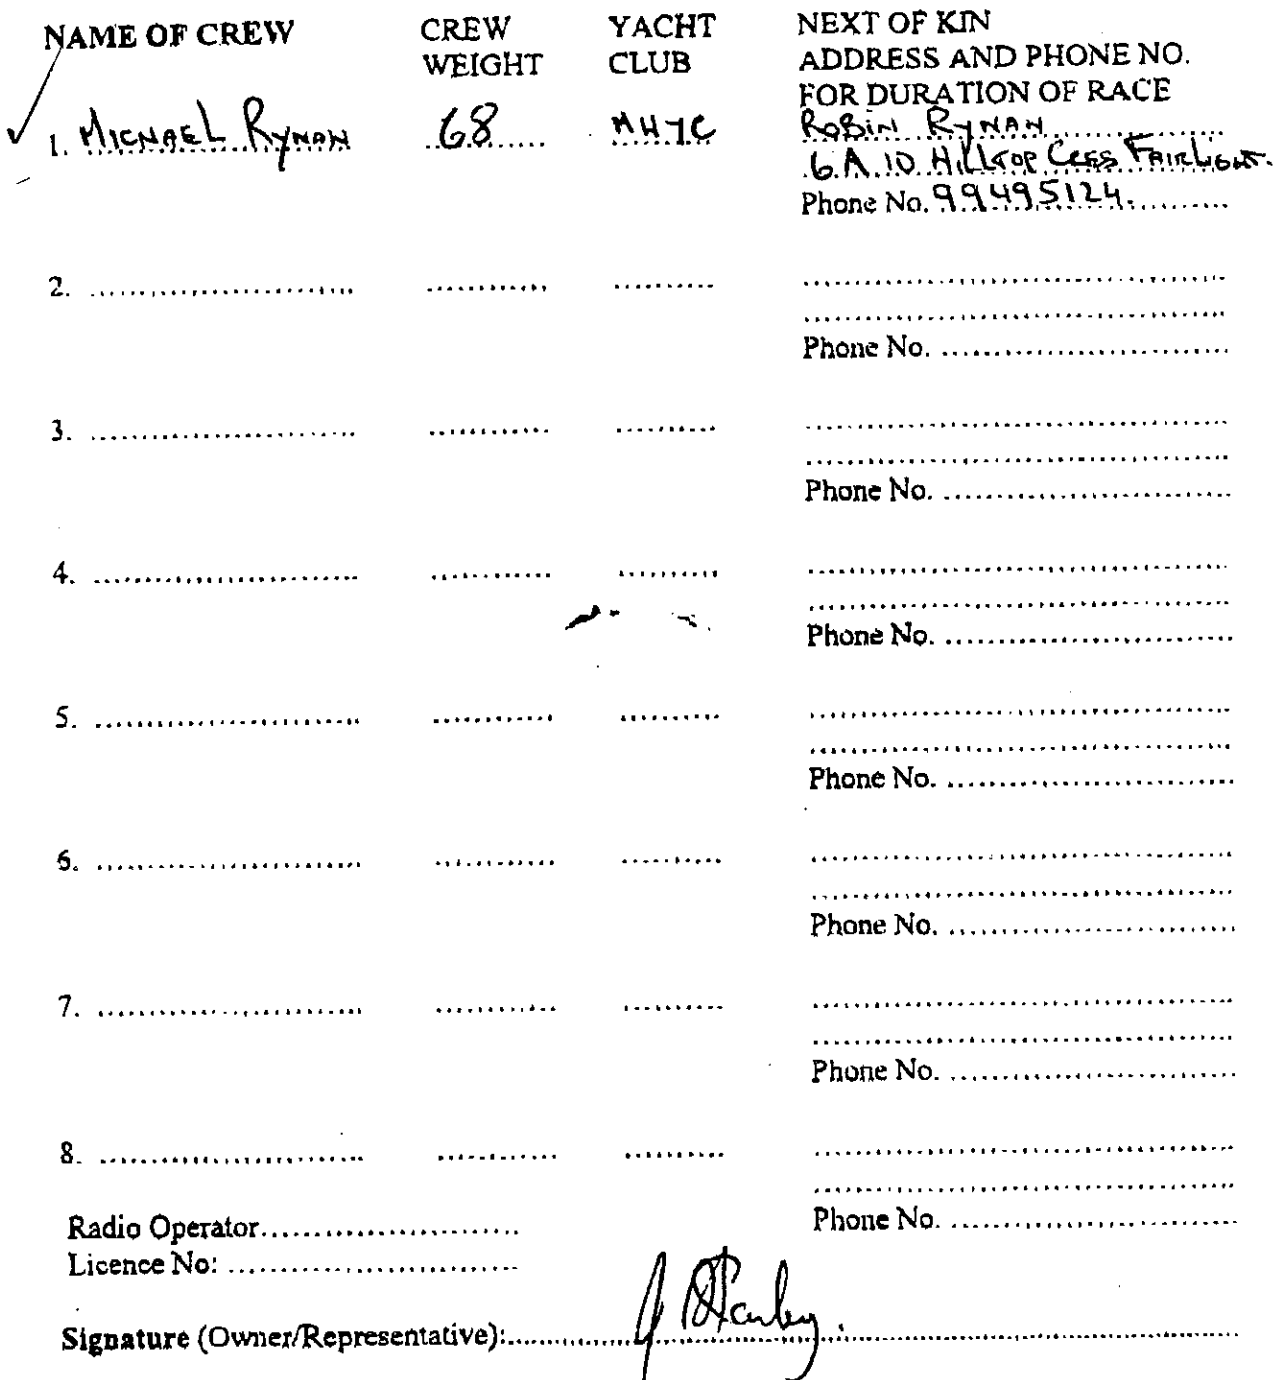 NAME OF CREW CREW WEIGHT YACHT CLUB NEXT OF KIN
ADDRESS AND PHONE NO.
FOR DURATION OF RACE
1. MICHAEL RYNAN 68 MHYC ROBIN RYNAN
6A. 10 HILLTOP CRES FAIRLIGHT.
Phone No. 99495124.
2. ........................ ............ ..........
Phone No. ............................
3. ........................ ............ ..........
Phone No. ............................
4. ........................ ............ ..........
Phone No. ............................
5. ........................ ............ ..........
Phone No. ............................
6. ........................ ............ ..........
Phone No. ............................
7. ........................ ............ ..........
Phone No. ............................
8. ........................ ............ ..........
Phone No. ............................
Radio Operator........................
Licence No: ...........................
Signature (Owner/Representative):..........